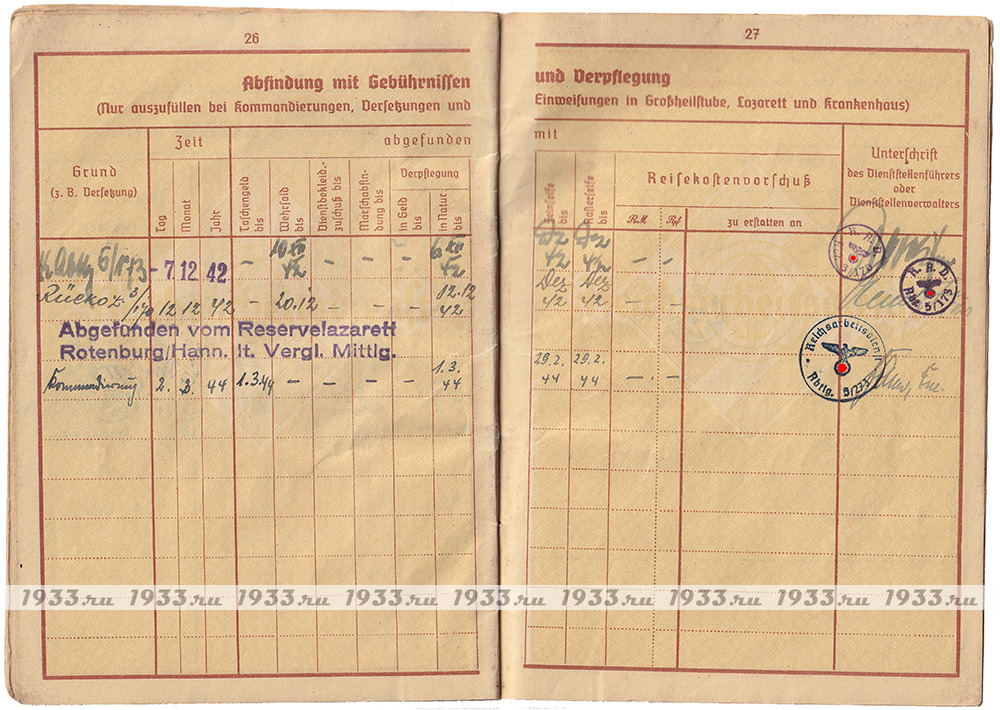 26
Abfindung mit Gebührnissen
(Nur auszufüllen bei Kommandierungen, Versetzungen und
Grund
(z. B. Versetzung)
Zeit
abgefunden
Tag
Monat
Jahr
Taschengeld bis
Wehrsold bis
Dienstbekleid.-zuschuß bis
Marschabfin-dung bis
Verpflegung
in Geld bis
in Natur bis
5/173 - 7. 12. 42 - 10. XII 42 - - - 6. XII 42
12 12 42 - 20.12 - - - 12.12 42
Abgefunden vom Reservelazarett
Rotenburg/Hann. lt. Vergl. Mittlg.
Kommandierung 2. 44 1.3.44 - - - - 1.3. 44
27
und Verpflegung
Einweisungen in Großheilstube, Lazarett und Krankenhaus)
mit
bis
Rasierseife bis
Reisekostenvorschuß
RM
Rpf
zu erstatten an
Unterschrift
des Dienststellenführers
oder
Dienststellenverwalters
Dez 42 Dez 42 - -
Dez 42 Dez 42 - -
29.2. 44 29.2. 44 - . -
R. A. D.
5/173
R. A. D.
Abt. 5/173
Reichsarbeitsdienst
Abtlg. 5/273
1933.ru 1933.ru 1933.ru 1933.ru 1933.ru 1933.ru 1933.ru 1933.ru 1933.ru